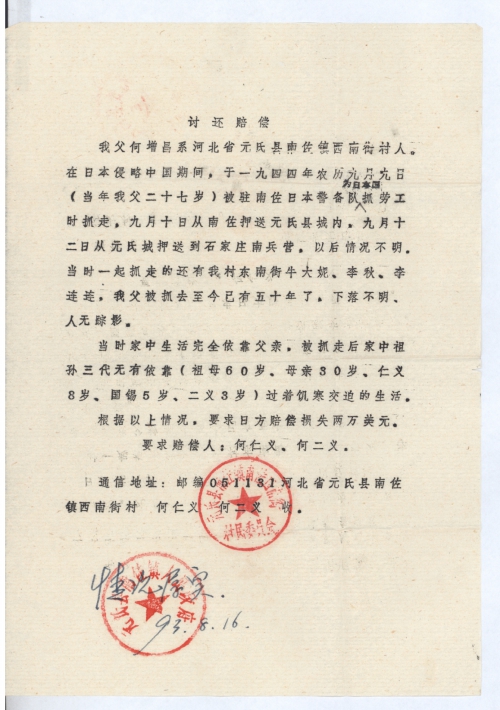 讨还赔偿
我父何增昌系河北省元氏县南佐镇西南街村人。
在日本侵略中国期间，于一九四四年农历九月九日
为日本国
（当年我父二十七岁）被驻南佐日本警备队抓劳工
时抓走，九月十日从南佐押送元氏县城内，九月十
二日从元氏城押送到石家庄南兵营，以后情况不明。
当时一起抓走的还有我村东南街牛大妮、李秋、李
连连，我父被抓去至今已有五十年了，下落不明、
人无踪影。
当时家中生活完全依靠父亲，被抓走后家中祖
孙三代无有依靠（祖母60岁、母亲30岁、仁义
8岁、国锡5岁、二义3岁）过着饥寒交迫的生活。
根据以上情况，要求日方赔偿损失两万美元。
要求赔偿人：何仁义、何二义。
通信地址：邮编051131河北省元氏县南佐
镇西南街村　何仁义　何二义　收。
村民委员会
情况属实.
93.8.16.